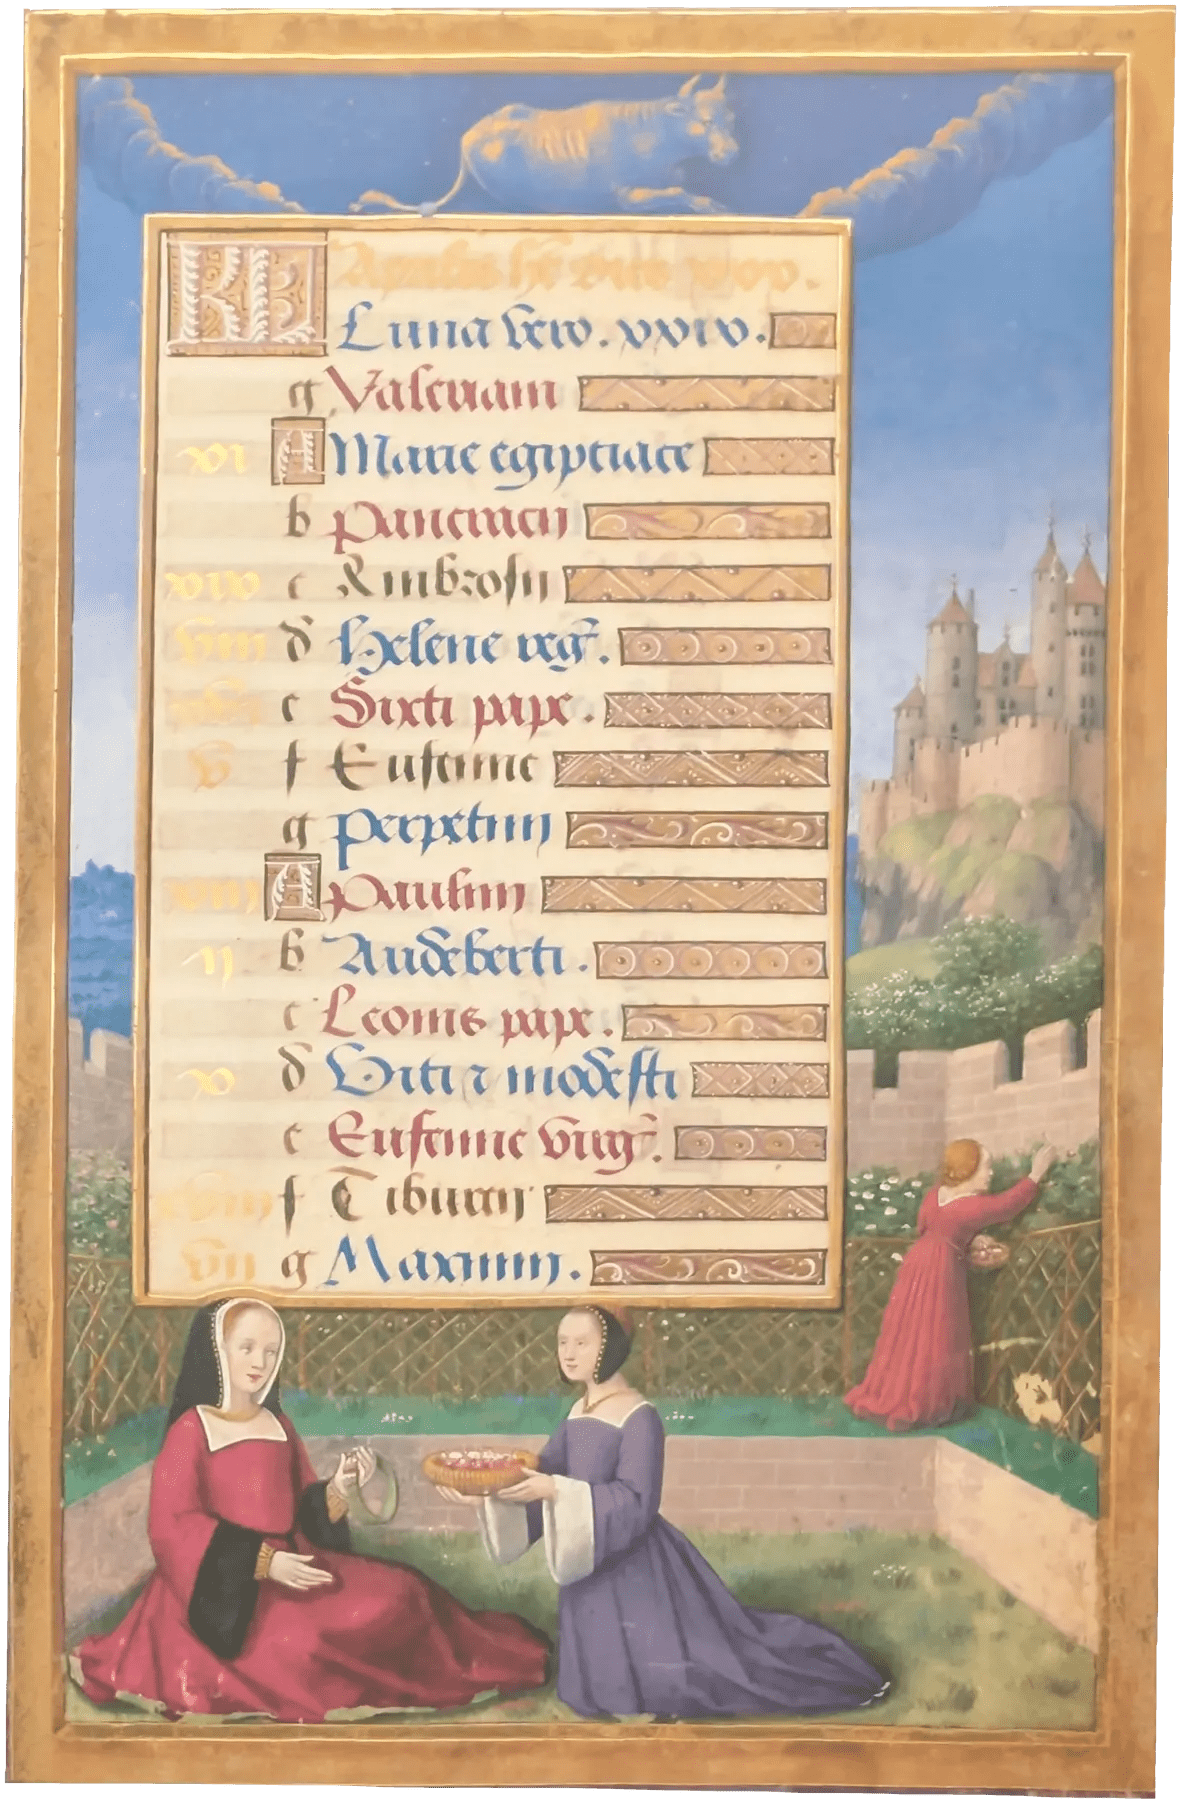 KL Aprilis ht dies xxx.
Luna vero. xxix.
g Valeriani
vi A Marie egiptiace
b pancracij
xiv c Ambrosij
viii d helene reg.
e Sixti pape.
v f Eufemie
g perpetuij
xiii A paulini
ii b Audeberti.
c Leonis pape.
x d Viti z modesti
e Eufemie virg.
xviii f Tiburcij
vii g Maximi.